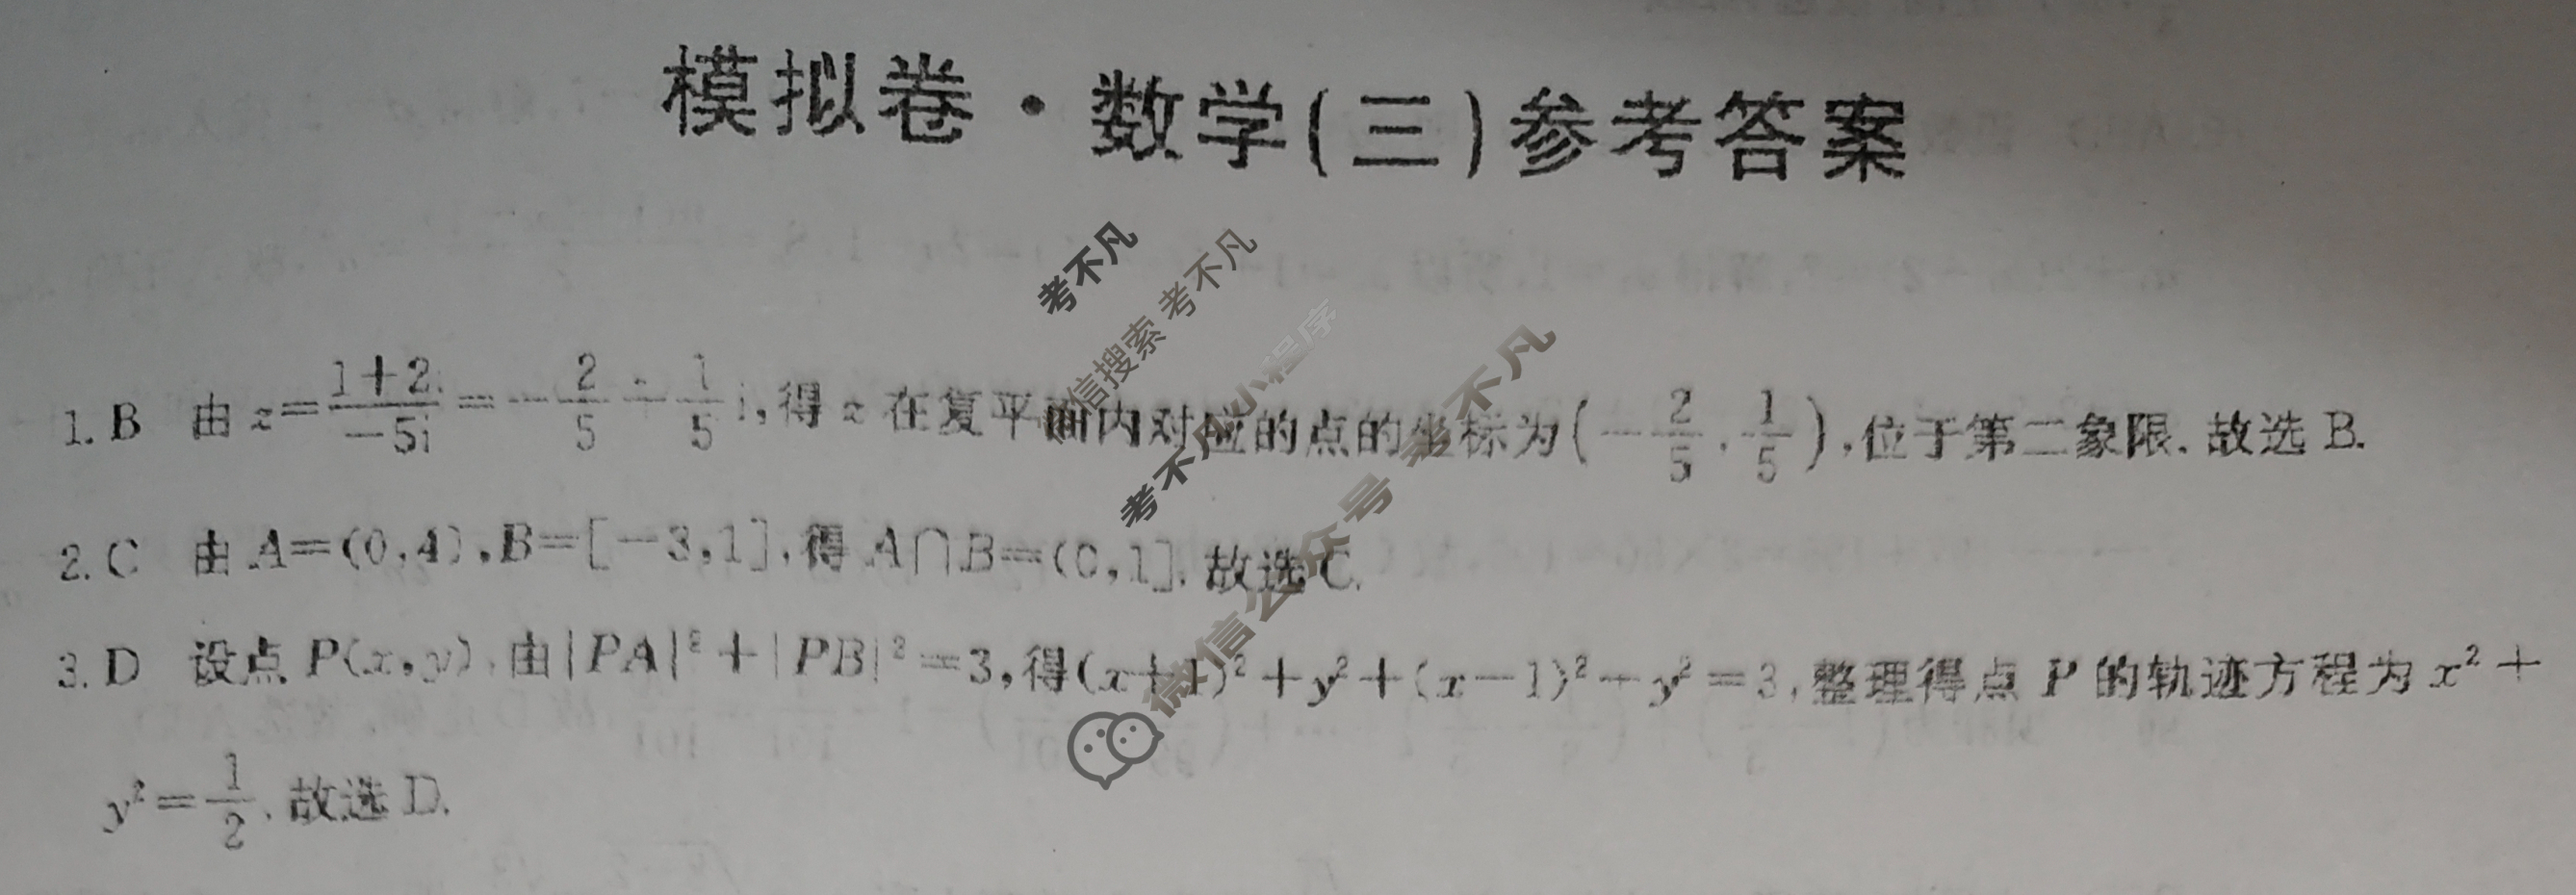 模拟卷·数学(三)参考答案
考不凡
微信搜索 考不凡
考不凡小程序
微信公众号 考不凡
1. B 由 z=\frac{1+2i}{-5i}=-\frac{2}{5}+\frac{1}{5}i,得 z 在复平面内对应的点的坐标为(-\frac{2}{5},\frac{1}{5}),位于第二象限. 故选 B.
2. C 由 A=(0,4),B=[-3,1],得 A∩B=(0,1]. 故选 C.
3. D 设点 P(x,y),由|PA|²+|PB|²=3,得(x+1)²+y²+(x-1)²+y²=3,整理得点 P 的轨迹方程为 x²+
y²=\frac{1}{2}. 故选 D.